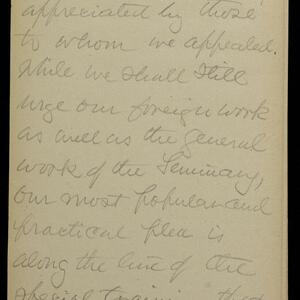 appreciated by those
to whom we appealed.
While we shall still
urge our foreign work
as well as the general
work of the Seminary,
our most popular and
practical plea is
along the line of the
special training